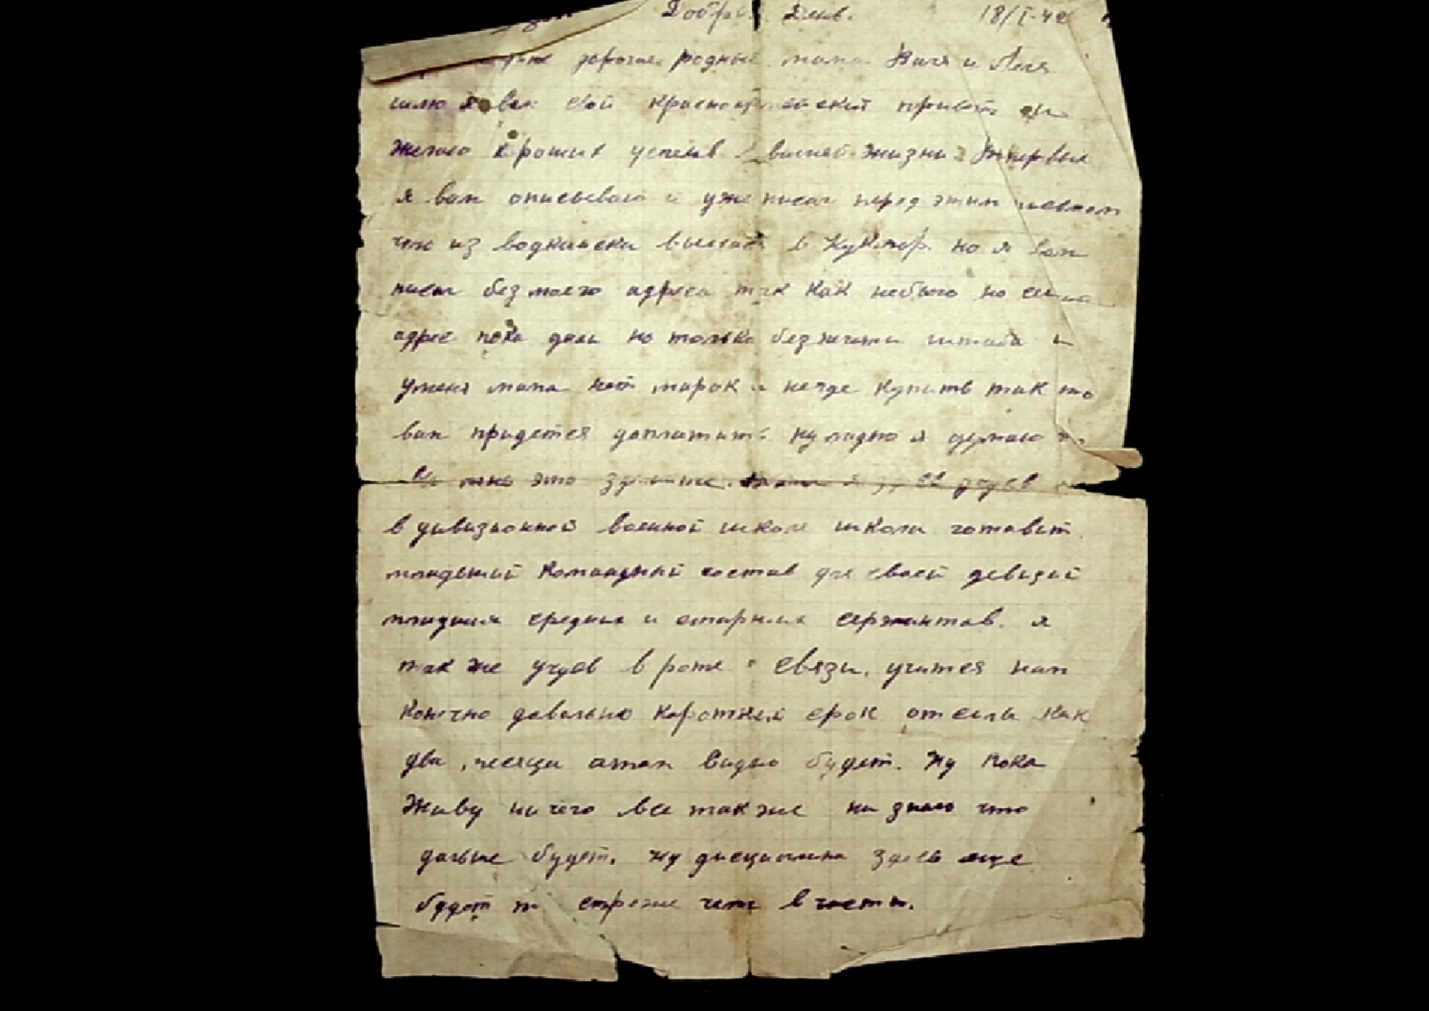 Добр. День. 18/I-42
дорогие родные мама Валя и Лёля
шлю я вам свой красноармейский привет и
желаю хороших успехов в вашей жизни. Впервых
я вам описываю и уже писал перед этим письмом
что из Водкинска выехал в Кукмор. но я вам
писал без моего адреса так как небыло но сичас
адрес пока дали но только без печати штаба и
уменя мама нет марок и негде купить так что
вам придется доплатить ну ладно я думаю
вы мне это я здесь учусь
в дивизионной военной школе школа готовит
младший командный состав для своей девизий
младших средних и старших сержантов. я
так же учусь в роте связи. учится нам
конечно довольно короткий срок от силы как
два месяца атам видно будет. Ну пока
живу ничего все также ни знаю что
дальше будет. ну дисциплина здесь еще
будет по строже чем в части.